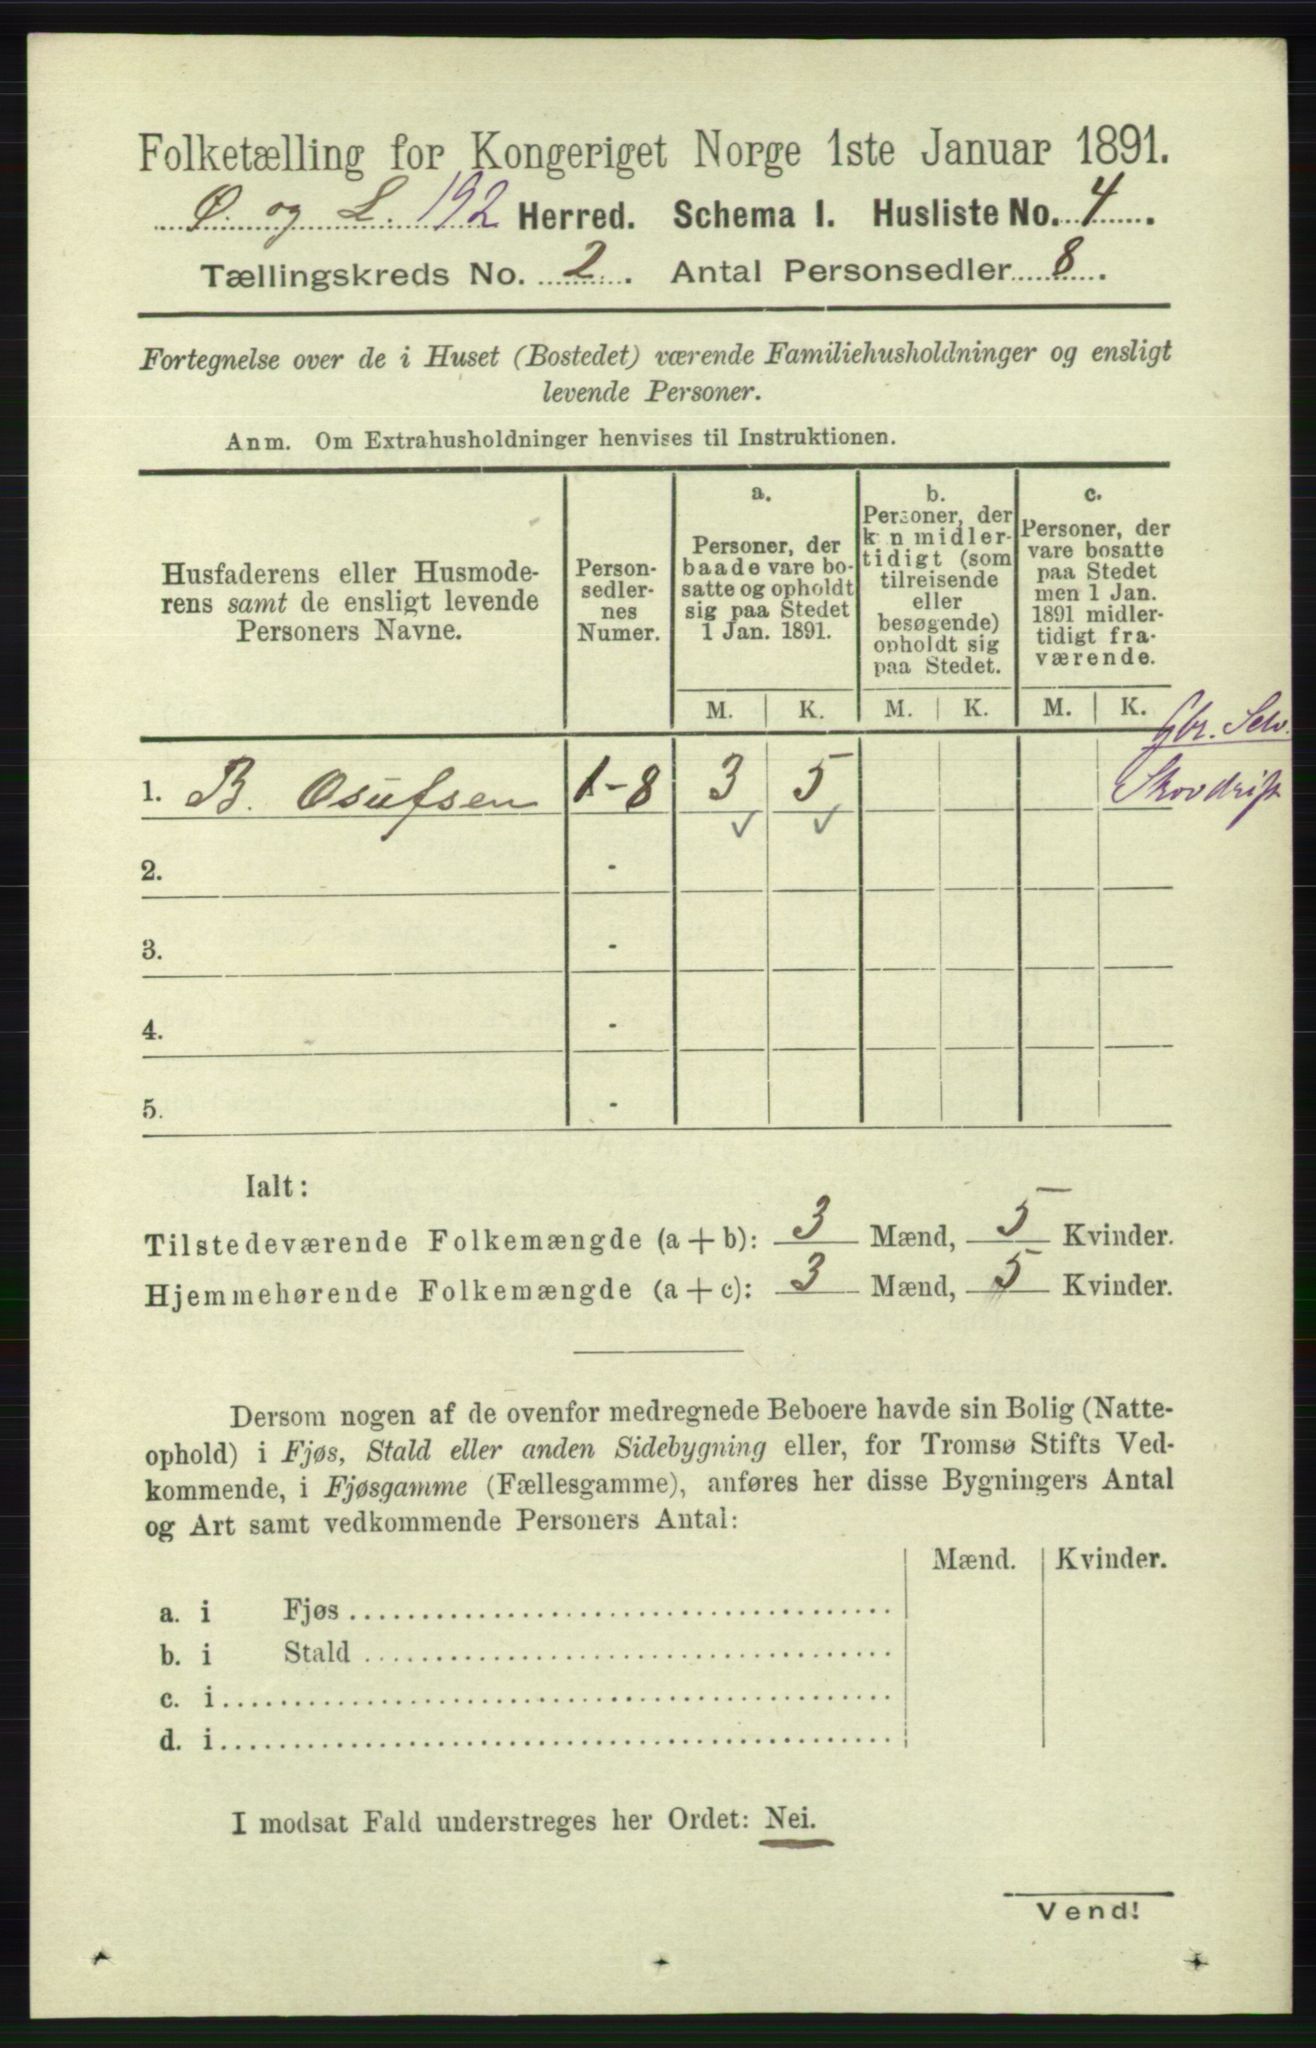 Folketælling for Kongeriget Norge 1ste Januar 1891.
Ø. og L. 192 Herred. Schema I. Husliste No. 4.
Tællingskreds No. 2. Antal Personsedler 8.
Fortegnelse over de i Huset (Bostedet) værende Familiehusholdninger og ensligt
levende Personer.
Anm. Om Extrahusholdninger henvises til Instruktionen.
Husfaderens eller Husmode-
rens samt de ensligt levende
Personers Navne.
Person-
sedler-
nes
Numer.
a.
Personer, der
baade vare bo-
satte og opholdt
sig paa Stedet
1 Jan. 1891.
b.
Personer, der
kun midler-
tidigt (som
tilreisende
eller
besøgende)
opholdt sig
paa Stedet.
c.
Personer, der
vare bosatte
paa Stedet
men 1 Jan.
1891 midler-
tidigt fra-
værende.
M. K. M. K. M. K.
Gbr. Selv.
1. B. Osufsen 1-8 3 5 Skovdrift
2. -
3. -
4. -
5. -
Ialt:
Tilstedeværende Folkemængde (a + b): 3 Mænd, 5 Kvinder.
Hjemmehørende Folkemængde (a + c): 3 Mænd, 5 Kvinder.
Dersom nogen af de ovenfor medregnede Beboere havde sin Bolig (Natte-
ophold) i Fjøs, Stald eller anden Sidebygning eller, for Tromsø Stifts Ved-
kommende, i Fjøsgamme (Fællesgamme), anføres her disse Bygningers Antal
og Art samt vedkommende Personers Antal:
Mænd. Kvinder.
a. i Fjøs
b. i Stald
c. i
d. i
I modsat Fald understreges her Ordet: Nei.
Vend!